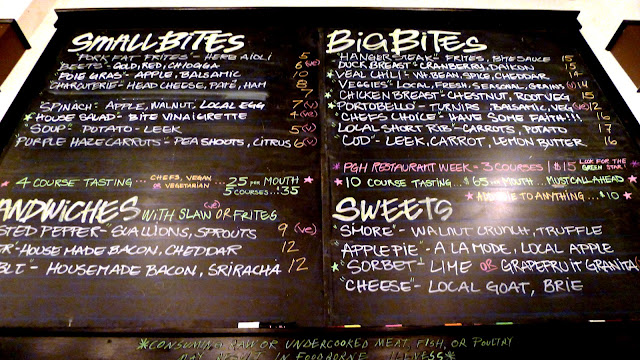 SMALL BITES
"PORK FAT FRITES" - HERB AIOLI 5
"BEETS" - GOLD, RED, CHIOGGA 6 (VE)
"FOIE GRAS" - APPLE, BALSAMIC 10
"CHARCUTERIE" - HEAD CHEESE, PATÉ, HAM 8
7
"SPINACH" - APPLE, WALNUT, LOCAL EGG 7 (V)
*"HOUSE SALAD" - BITE VINAIGRETTE 4 (VE)
"SOUP" - POTATO - LEEK 5 (V)
"PURPLE HAZE CARROTS" - PEA SHOOTS, CITRUS 6 (V)
* 4 COURSE TASTING... CHEFS, VEGAN OR VEGETARIAN ...25 PER MOUTH *
5 COURSES...35
ANDWICHES WITH SLAW OR FRITES
STED PEPPER - SCALLIONS, SPROUTS 9 (VE)
ER - HOUSE MADE BACON, CHEDDAR 12
BLT" - HOUSEMADE BACON, SRIRACHA 12
BIG BITES
"HANGER STEAK" - FRITES, BITE SAUCE 15
DUCK BREAST - CRANBERRIES, DAIKON 15
*VEAL CHILI - WH. BEAN, SPICE, CHEDDAR 14
VEGGIES - LOCAL, FRESH, SEASONAL, GRAINS (V) 14
*CHICKEN BREAST - CHESTNUT, ROOT VEG 15
*"PORTOBELLO" - TURNIPS, BALSAMIC, VEG (VE) 12
"CHEFS CHOICE" - HAVE SOME FAITH!!! 16
LOCAL SHORT RIB - CARROTS, POTATO 17
"COD" - LEEK, CARROT, LEMON BUTTER 16
* PGH RESTAURANT WEEK = 3 COURSES | $15 LOOK FOR THE GREEN STAR!
* 10 COURSE TASTING... $65 PER MOUTH... MUST CALL AHEAD *
TO ANYTHING...$10 *
SWEETS
"SMORE" - WALNUT CRUNCH, TRUFFLE
APPLE PIE" - A LA MODE, LOCAL APPLE
*"SORBET" - LIME OR GRAPEFRUIT GRANITA
"CHEESE" - LOCAL GOAT, BRIE
*CONSUMING RAW OR UNDERCOOKED MEAT, FISH, OR POULTRY
MAY RESULT IN FOODBORNE ILLNESS*